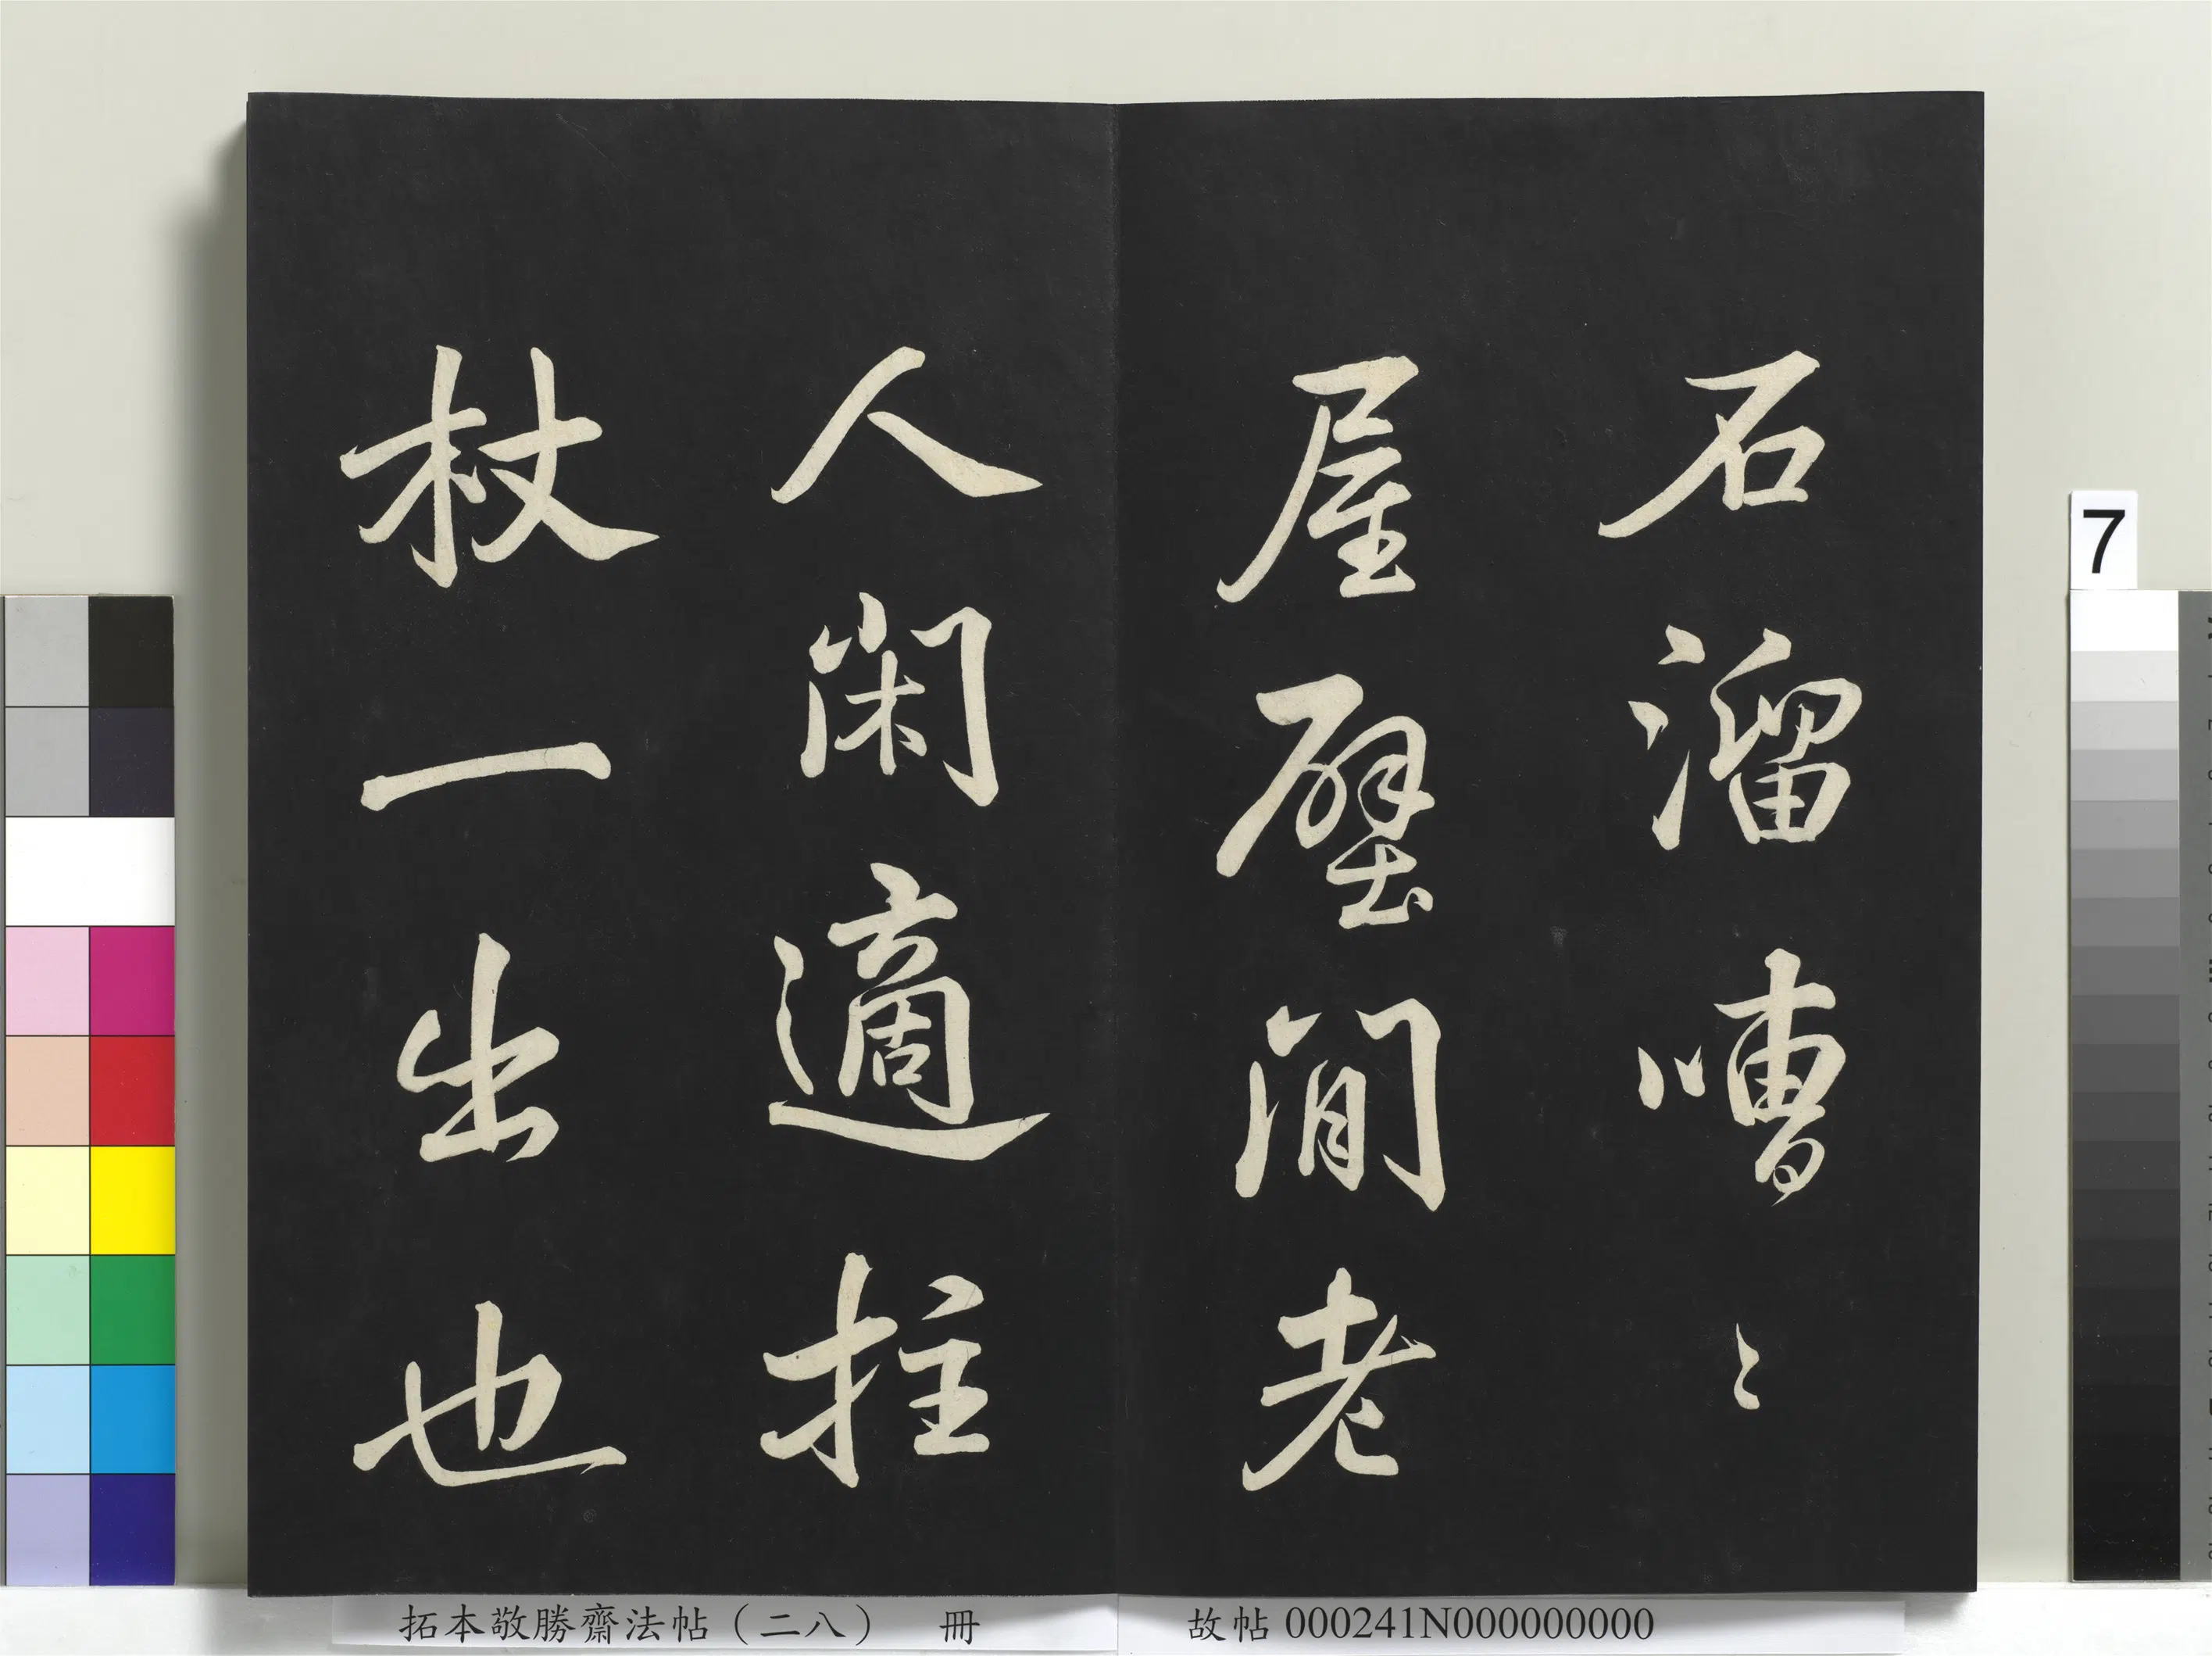 石溜嘈〻
屋壁間老
人閑適拄
杖一出也
拓本敬勝齋法帖（二八） 冊
故帖 000241N000000000
7